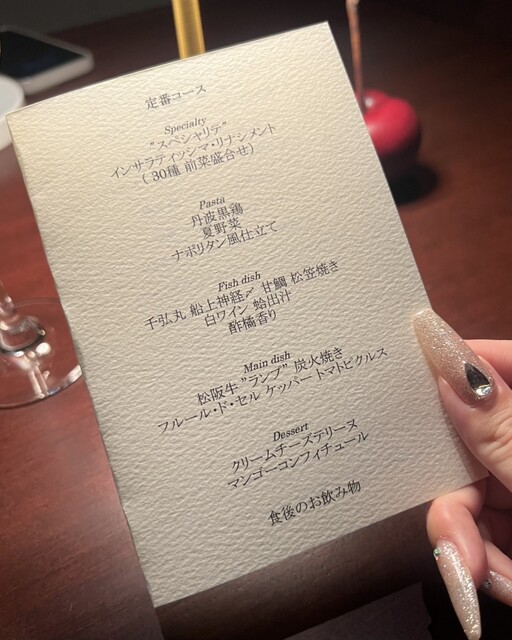 定番コース
Specialty
"スペシャリテ"
インサラティッシマ・リナシメント
( 30種 前菜盛合せ)
Pasta
丹波黒鶏
夏野菜
ナポリタン風仕立て
Fish dish
千弘丸 船上神経〆 甘鯛 松笠焼き
白ワイン 蛤出汁
酢橘香り
Main dish
松阪牛 "ランプ" 炭火焼き
フルール・ド・セル ケッパー トマトピクルス
Dessert
クリームチーズテリーヌ
マンゴーコンフィチュール
食後のお飲み物